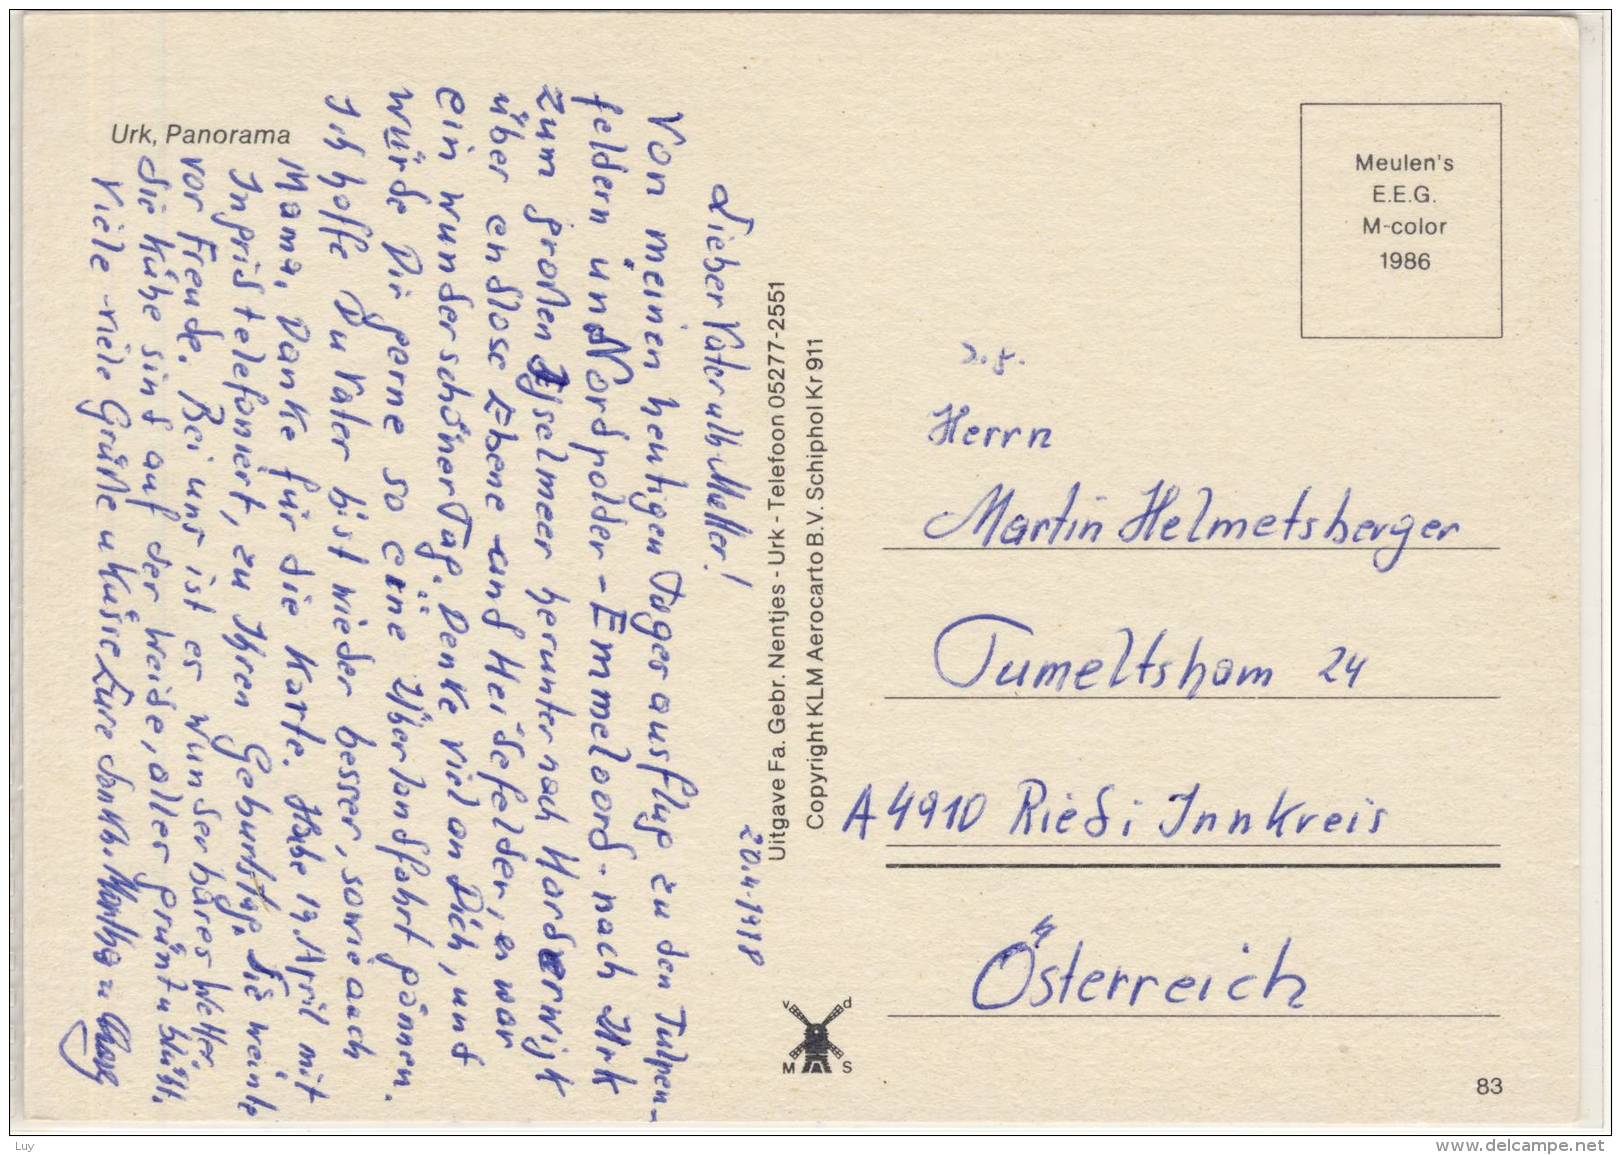 Urk, Panorama
20.4.1988
Lieber Vater u lb. Mutter!
Von meinen heutigen Tagesausflug zu den Tulpen-
feldern und Nordpolder-Emmeloord-nach Urk
zum großen Ijselmeer herunter nach Harderwijk
über endlose Ebene und Heidefelder, es war
ein wunderschöner Tag. Denke viel an Dich, und
würde Dir gerne so eine Überlandfahrt gönnen.
Ich hoffe Du Vater bist wieder besser, sowie auch
Mama. Danke für die Karte. Habe 19. April mit
Ingrid telefoniert, zu Ihren Geburtstag. Sie weinte
vor Freude. Bei uns ist es wunderbares Wetter
die Kühe sind auf der Weide, alles grünt u blüht.
Viele-viele Grüße u Küsse Eure dankb. Martha u
Uitgave Fa. Gebr. Nentjes - Urk - Telefoon 05277-2551
Copyright KLM Aerocarto B.V. Schiphol Kr 911
v d
M S
Meulen's
E.E.G.
M-color
1986
Herrn
Martin Helmetsberger
Tumeltsham 24
A 4910 Ried i Innkreis
Österreich
83
Luy
www.delcampe.net